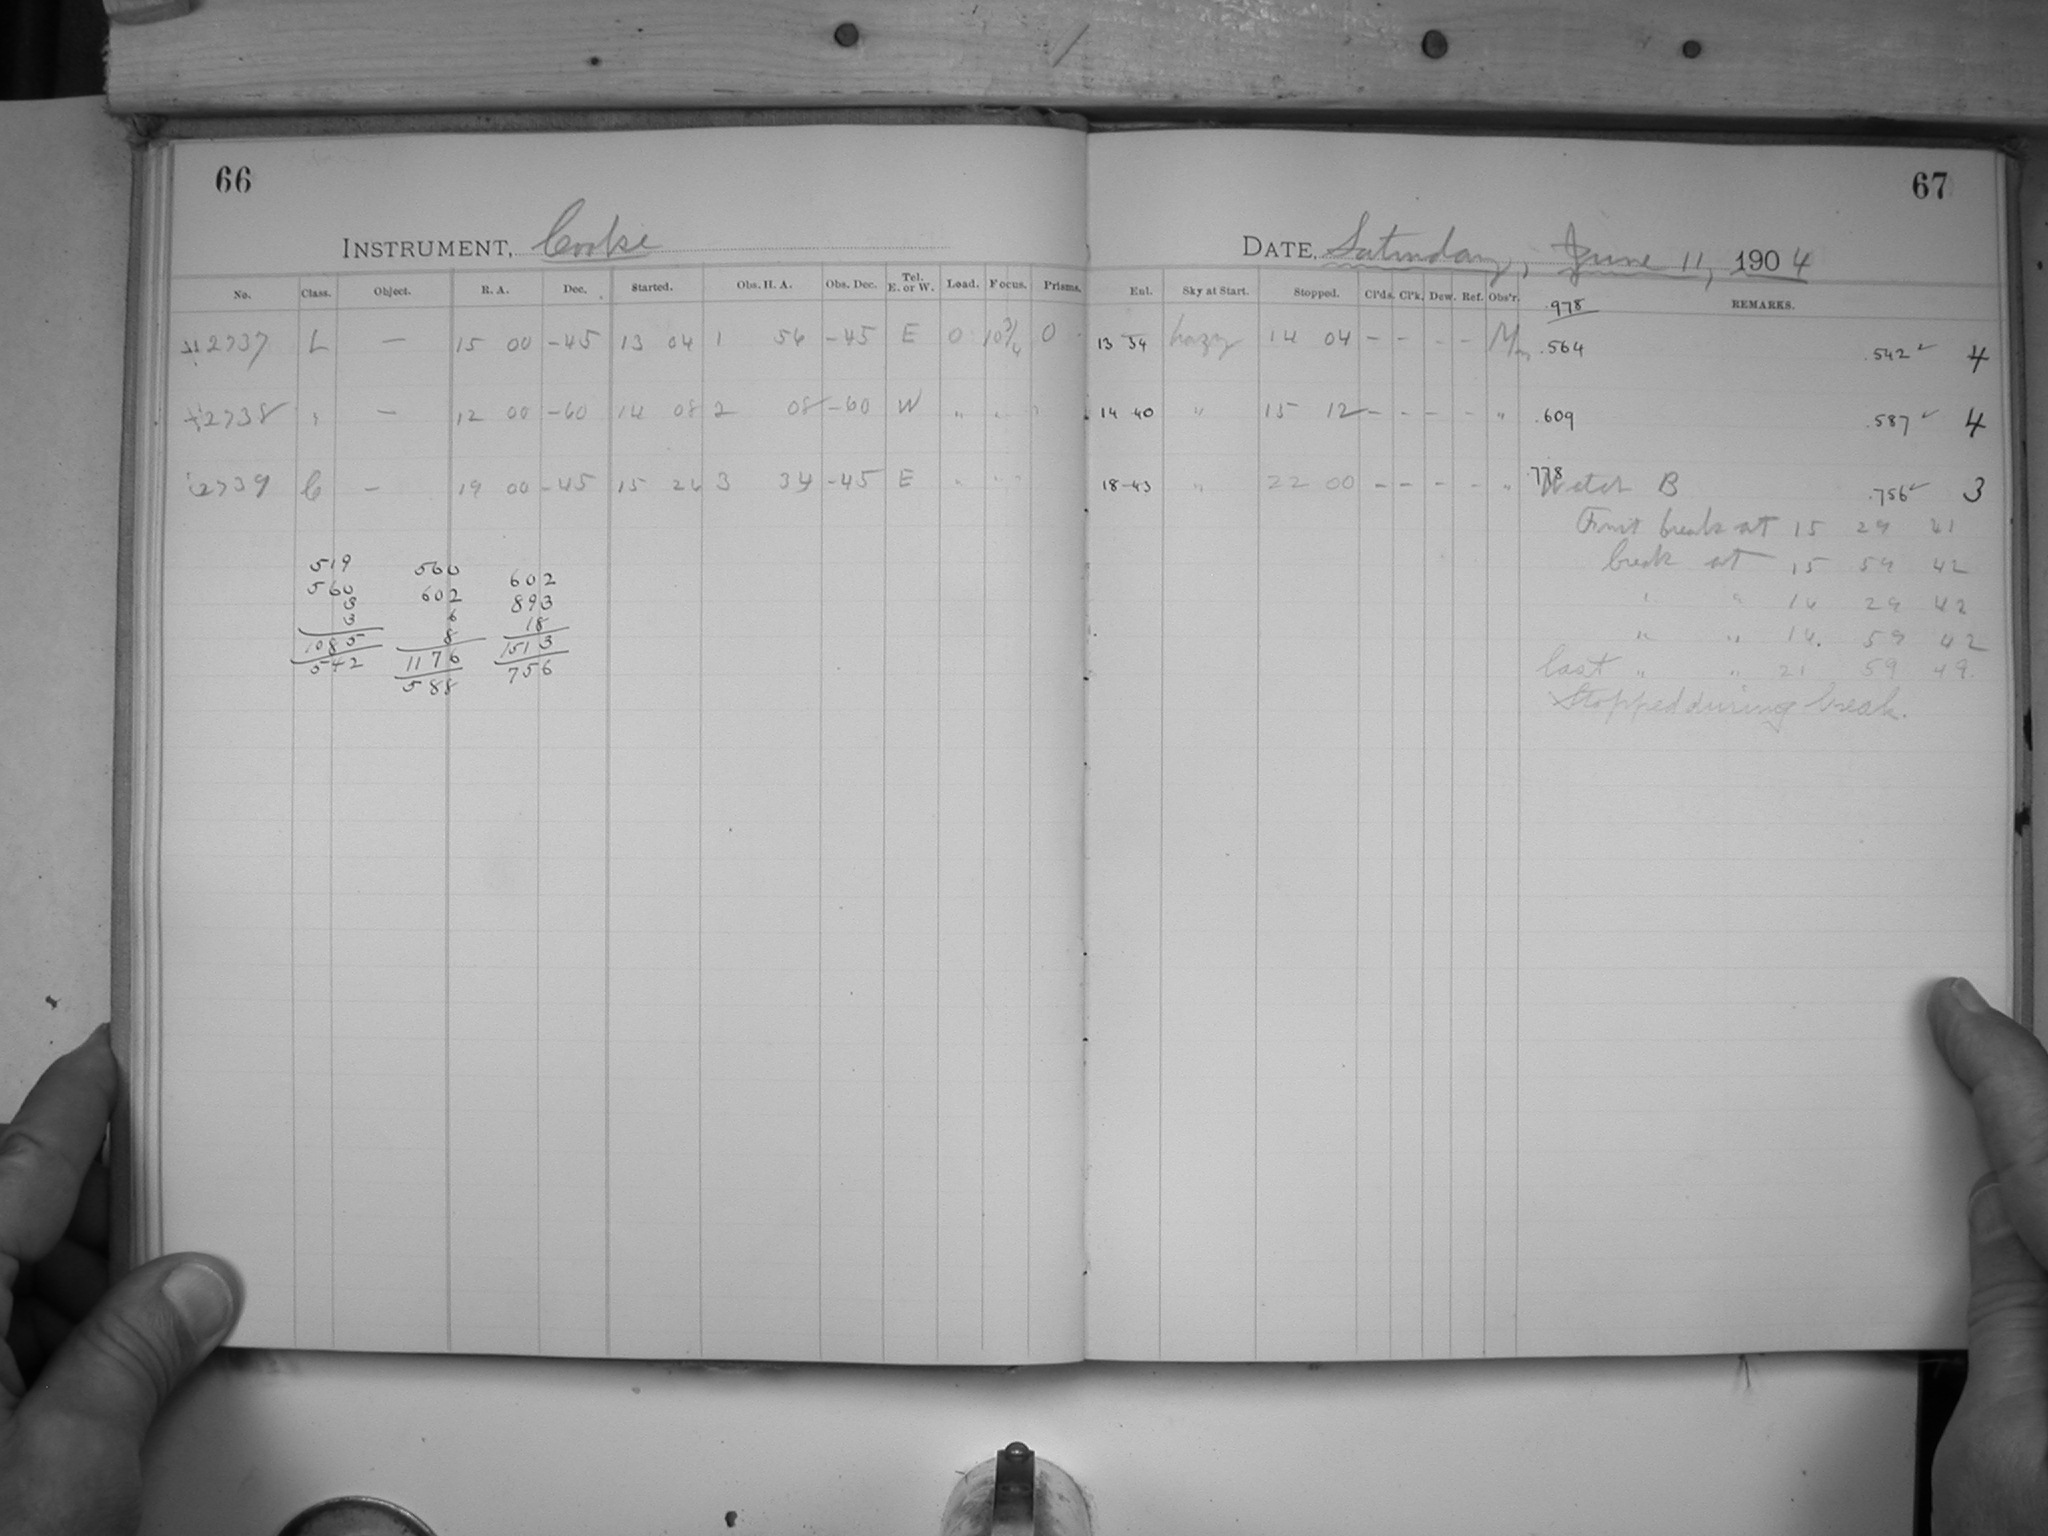 66
INSTRUMENT, Cooke
No. Class. Object. R. A. Dec. Started. Obs. H. A. Obs. Dec. Tel. E. or W. Load. Focus. Prisms.
2737 L — 15 00 -45 13 04 1 56 -45 E 0 10 3/4 0
2738 " — 12 00 -60 14 08 2 08 -60 W " " "
2739 C — 19 00 -45 15 26 3 34 -45 E " " "
519 560 602
560 602 893
3 6 18
3 8 1513
1085 1176 756
542 588
67
DATE, Saturday, June 11, 1904
Ent. Sky at Start. Stopped. Cl'ds. Cl'k. Dew. Ref. Obs'r. REMARKS.
.978
13 34 hazy 14 04 - - - - .564 .542 ✓ 4
14 40 " 15 12 - - - - " .609 .587 ✓ 4
18-43 " 22 00 - - - - " .778 Watch B .756 ✓ 3
First break at 15 29 41
break at 15 59 42
" " 16 29 42
" " 16. 59 42
last " " 21 59 49.
Stopped during break.